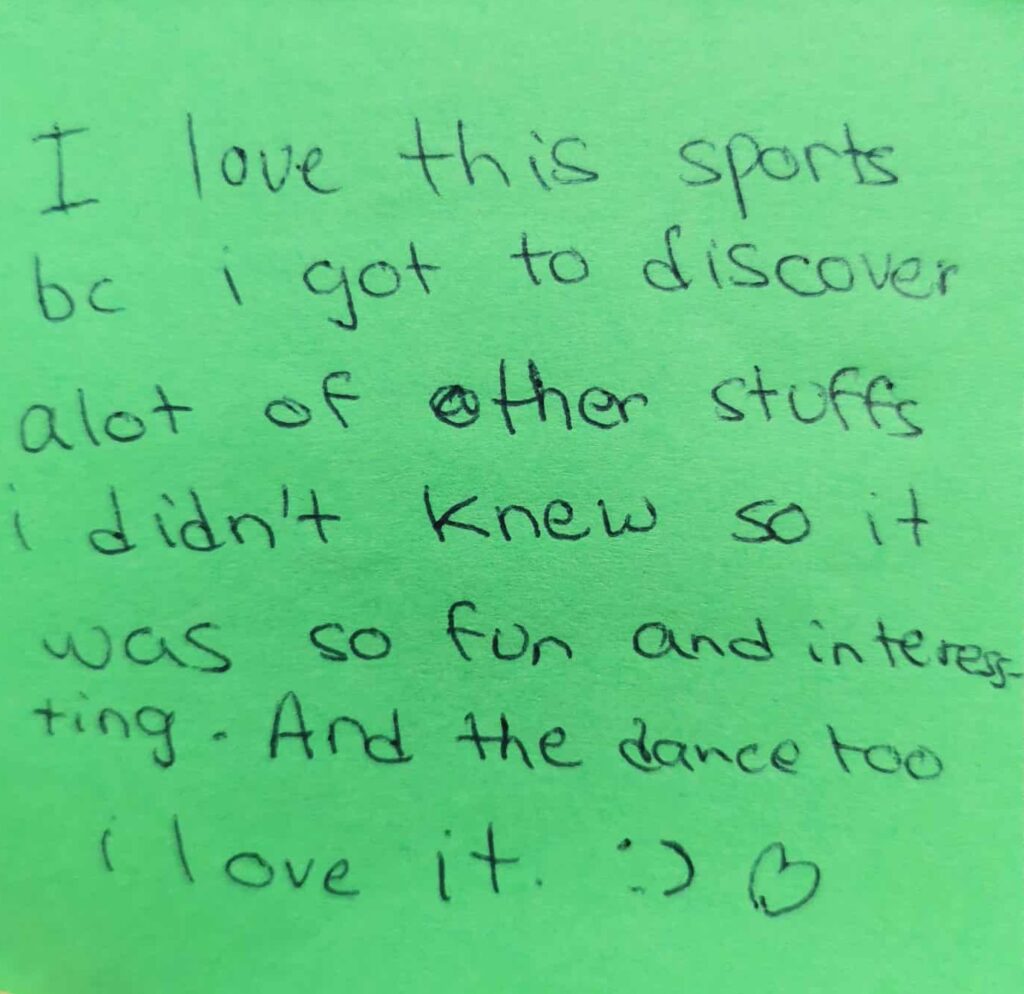 I love this sports
bc i got to discover
alot of other stuffs
i didn't knew so it
was so fun and interess-
ting. And the dance too
i love it. :) ♡